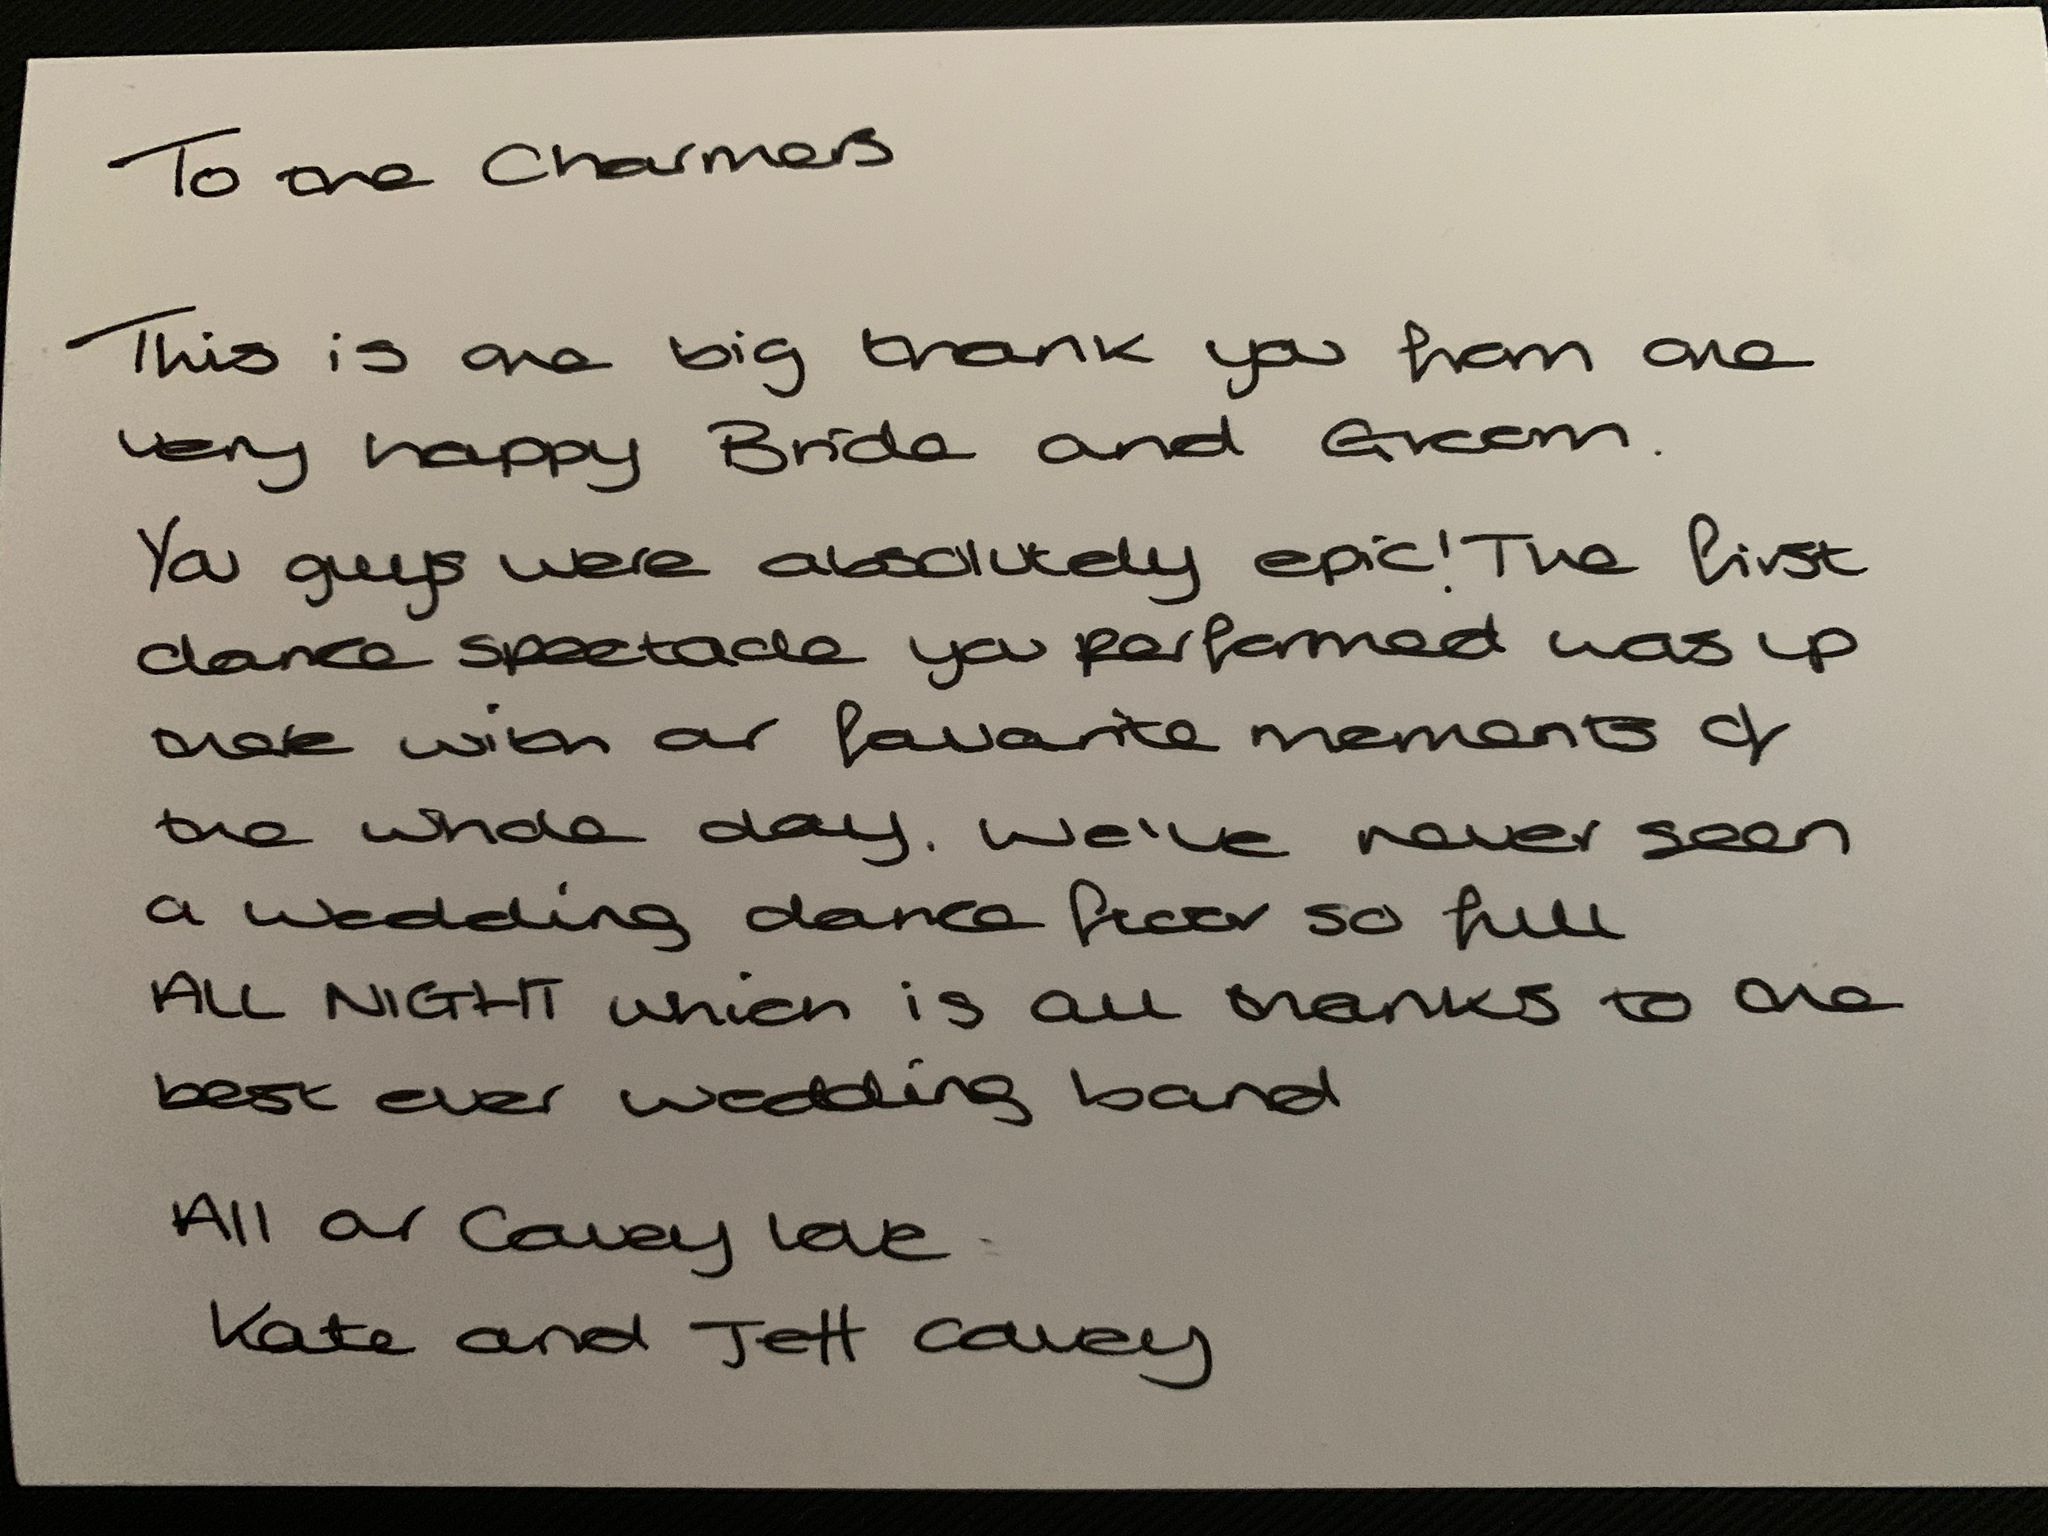 To the Charmers
This is one big thank you from one
very happy Bride and Groom.
You guys were absolutely epic! The first
dance spectacle you performed was up
there with our favorite moments of
the whole day. We've never seen
a wedding dance floor so full
ALL NIGHT which is all thanks to the
best ever wedding band
All our Cavey love
Kate and Jeff Cavey